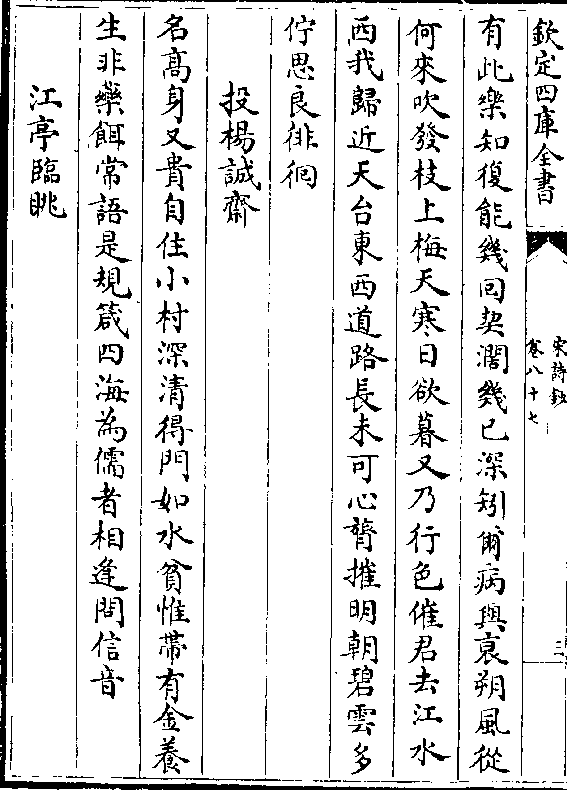 欽定四庫全書
宋詩鈔
卷八十七
三
有此樂知復能幾回契濶幾已深矧爾病與衰朔風從
何來吹發枝上梅天寒日欲暮又乃行色催君去江水
西我歸近天台東西道路長未可心膂摧明朝碧雲多
佇思良徘徊
投楊誠齋
名髙身又貴自住小村深清得門如水貧惟帶有金養
生非藥餌常語是規箴四海為儒者相逢問信音
江亭臨眺